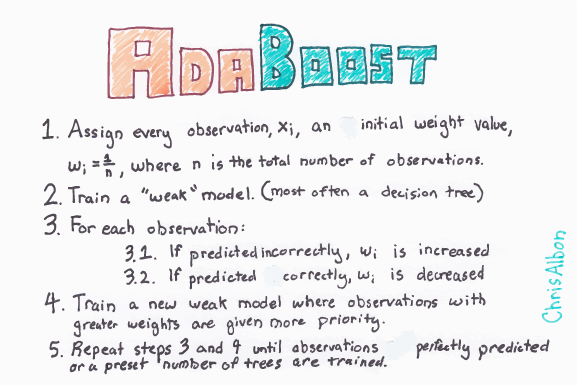 ADABOOST
1. Assign every observation, xi, an initial weight value,
wi = 1/n, where n is the total number of observations.
2. Train a "weak" model. (most often a decision tree)
3. For each observation:
3.1. If predicted incorrectly, wi is increased
3.2. If predicted correctly, wi is decreased
4. Train a new weak model where observations with
greater weights are given more priority.
5. Repeat steps 3 and 4 until observations perfectly predicted
or a preset number of trees are trained.
Chris Albon